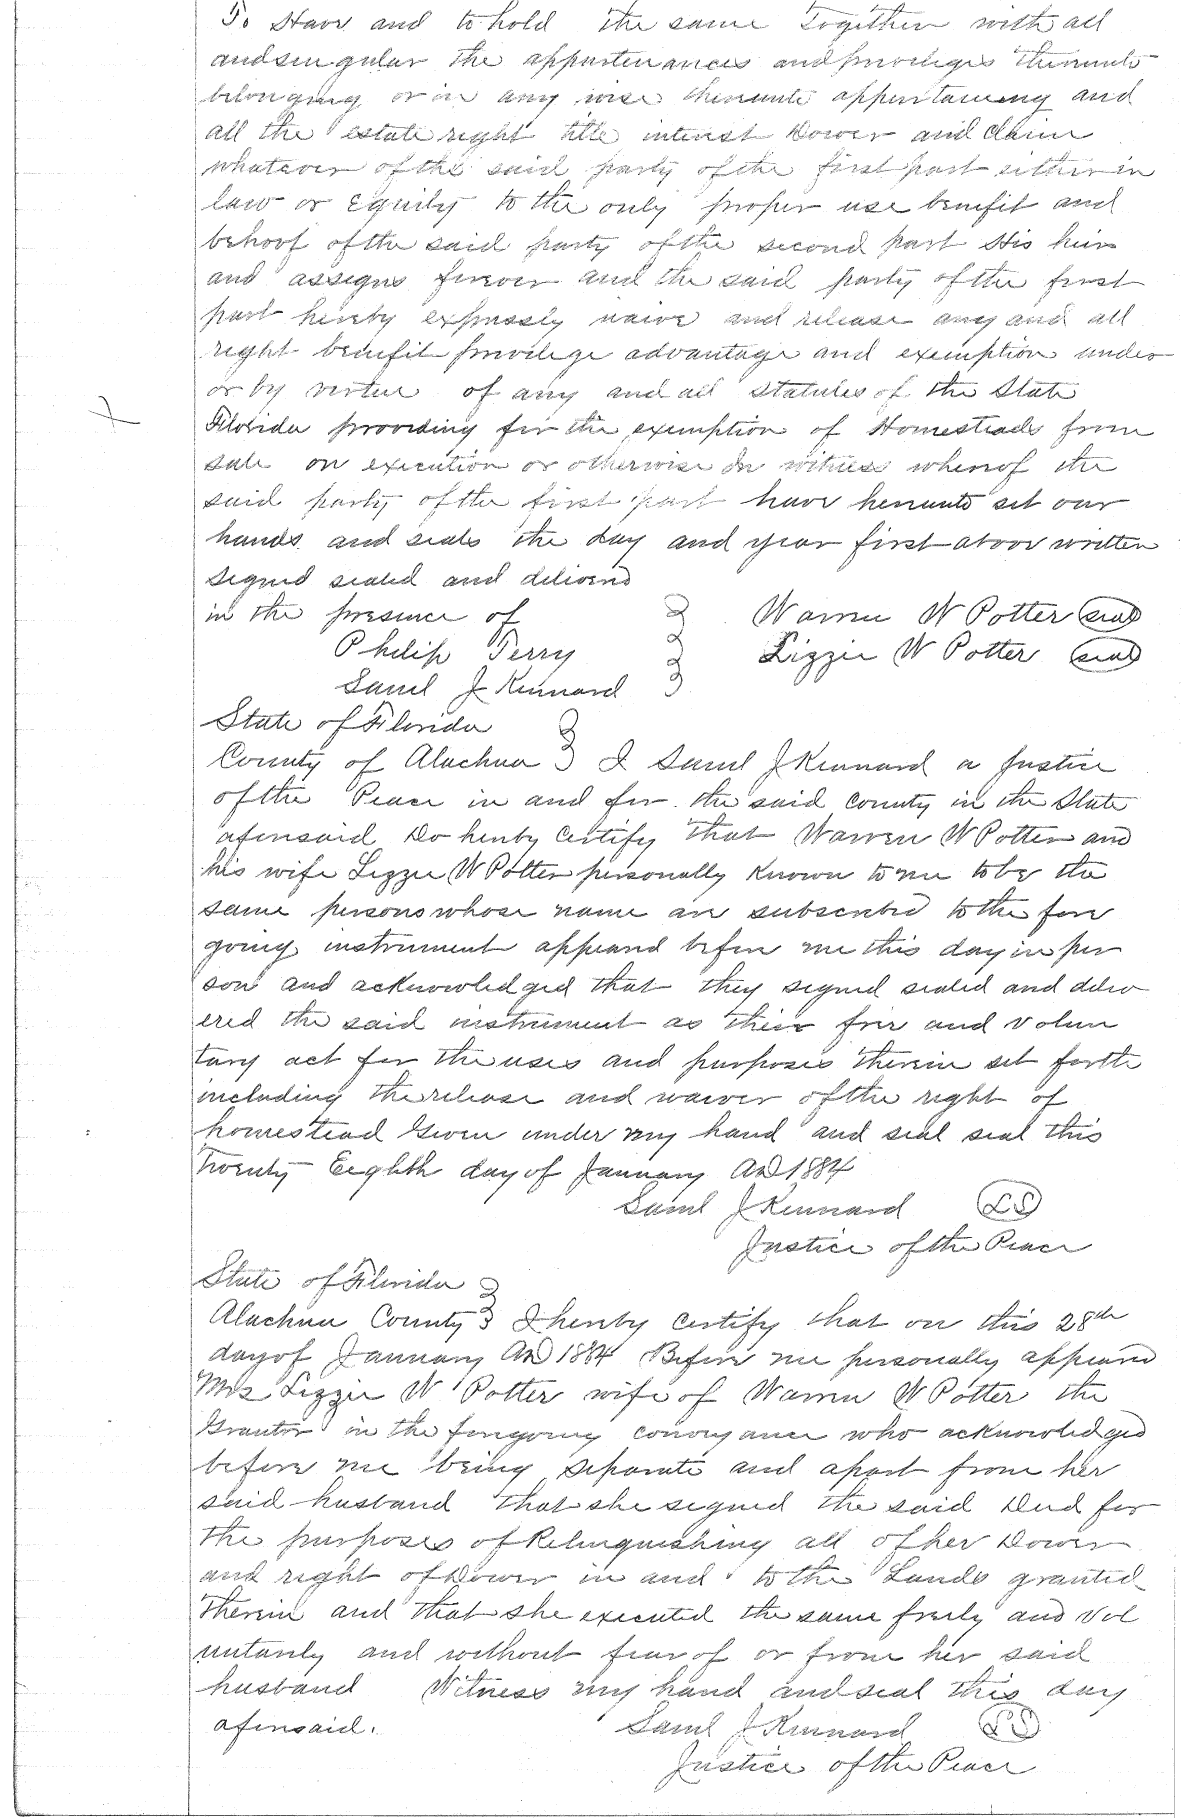 To Have and to hold the same together with all
and singular the appurtenances and privileges thereunto
belonging or in any wise thereunto appertaining and
all the estate right title interest Dower and Claim
whatever of the said party of the first part either in
law or Equity to the only proper use benefit and
behoof of the said party of the second part His heirs
and assigns forever and the said party of the first
part hereby expressly waive and release any and all
right benefit privilege advantage and exemption under
or by virtue of any and all Statutes of the State
Florida providing for the exemption of Homesteads from
sale on execution or otherwise In witness whereof the
said party of the first part have hereunto set our
hands and seals the day and year first above written
Signed sealed and delivered
in the presence of Warren W Potter seal
Philip Terry Lizzie W Potter seal
Saml J Kennard
State of Florida
County of Alachua I Saml J Kennard a Justice
of the Peace in and for the said County in the State
aforesaid Do hereby Certify that Warren W Potter and
his wife Lizzie W Potter personally Known to me to be the
same persons whose name are subscribed to the fore
going instrument appeared before me this day in per
son and acknowledged that they signed sealed and deliv
ered the said instrument as their free and volun
tary act for the uses and purposes therein set forth
including the release and waiver of the right of
homestead Given under my hand and seal seal this
Twenty Eighth day of January AD 1884
Saml J Kennard LS
Justice of the Peace
State of Florida
Alachua County I hereby Certify that on this 28th
day of January AD 1884 Before me personally appeared
Mrs Lizzie W Potter wife of Warren W Potter the
Grantor in the foregoing conveyance who acknowledged
before me being separate and apart from her
said husband that she signed the said Deed for
the purposes of Relinquishing all of her Dower
and right of Dower in and to the Lands granted
therein and that she executed the same freely and Vol
untarily and without fear of or from her said
husband Witness my hand and seal this day
aforesaid. Saml J Kennard LS
Justice of the Peace